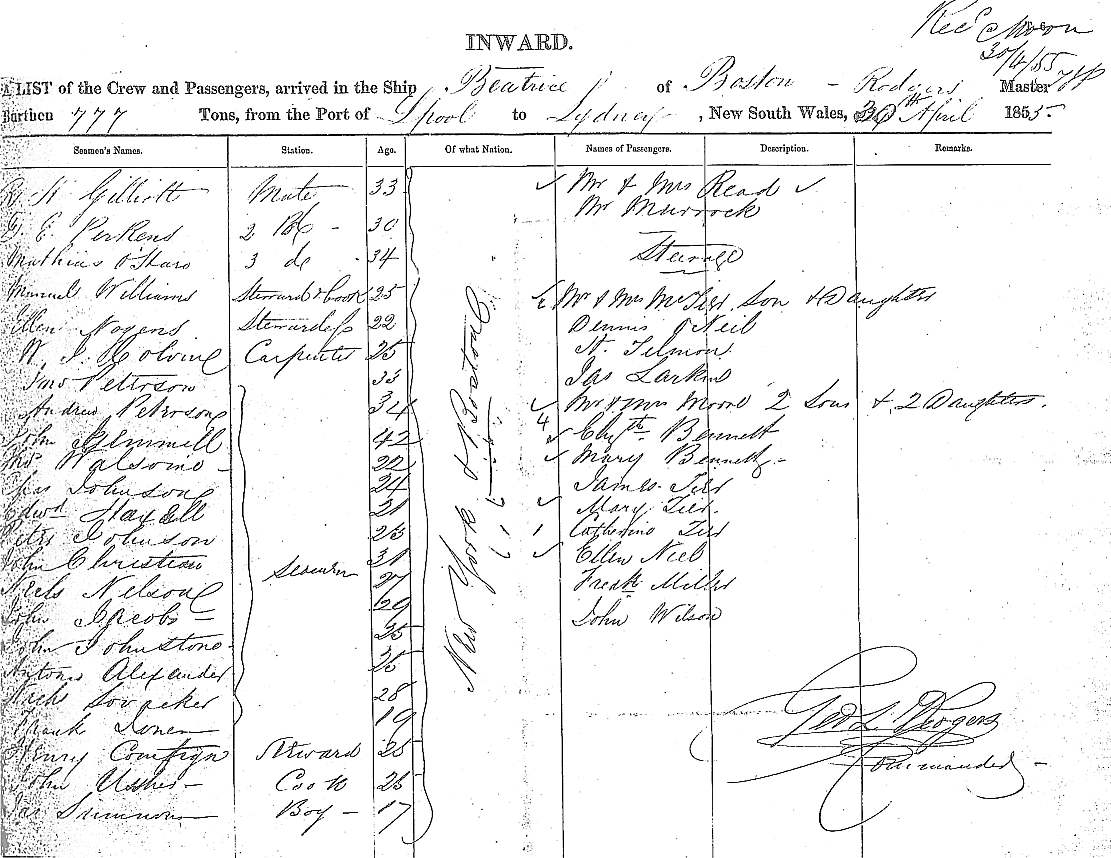 INWARD.
30/4/55
A LIST of the Crew and Passengers, arrived in the Ship Beatrice of Boston - Rodgers Master
Burthen 777 Tons, from the Port of Lpool to Sydney, New South Wales, 30th April 1855.
Seamen's Names. Station. Age. Of what Nation. Names of Passengers. Description. Remarks.
H Gilliott Mate 33 Mr & Mrs Read
Mr Murrock
E. Perkens 2 Do - 30
Steerage
Mathias O'Haro 3 do 34
Manuel Williams Steward & Cook 25 Mr & Mrs Son & Daughters
Ellen Nogens Stewardess 22 Dennis O'Neil
W. J. Carpenter 25
Peterson 33 Jas Larkin
Andrew Peterson 34 Mr & Mrs Moore 2 Sons & 2 Daughters.
John Gemmell 42 4 Elizth Bennett
22 Mary Bennett -
Chas Johnson 24 James
Edwd 21 Mary
Peter Johnson 25 Catherine
John Christian 31 Ellen Niel
Seamen
Niels Nelson 27 Frank Miller
John Jacobs - 29 John Wilson
John Johnstone 35
Antonio Alexander 25
28
Frank Jones 19
Henry Steward 25
John Usher - Cook 25
Jas Simmons Boy - 17
New York & Boston
Geo L. Rodgers
Commander -